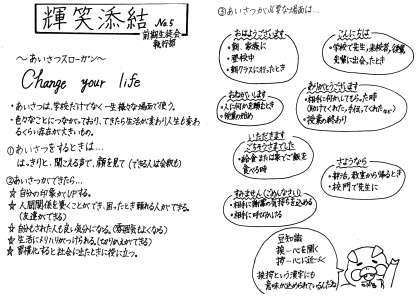 輝笑添結 No.5
前期生徒会
執行部
～あいさつスローガン～
Change your life
・あいさつは、学校だけでなく一生様々な場面で使う。
・色々なことにつながっており、できたら生活が変わり人生も変わ
るくらい存在が大きいもの。
①あいさつをするときは…
はっきりと、聞こえる声で、顔を見て(できる人は会釈も)
②あいさつができたら…
☆自分の印象がUPする。
☆人間関係を築くことができ、困ったとき頼れる人ができる。
(友達ができる)
☆自分もされた人も良い気分になる。(雰囲気もよくなる)
☆生活にメリハリがつけられる。(切りかえができる)
☆習慣化すると社会に出たときに役に立つ。
③あいさつが必要な場面は…
おはようございます
・朝、家族に
・登校中
・朝クラスに行ったとき
こんにちは
・学校で先生、来校者、後輩
先輩に出会ったとき
おねがいします
・人に何かを頼むとき
・授業の始め
ありがとうございます
・相手に何かしてもらった時
・授業の終わり
いただきます
ごちそうさまでした
・給食または家でご飯を
食べる時
さようなら
・部活、教室から帰るとき
・校門で先生に
すみません(ごめんなさい)
・相手に謝罪の気持ちを込める
・相手に呼びかける
豆知識
挨…心を開く
拶…心に近づく
挨拶という漢字にも
意味が込められているんだね